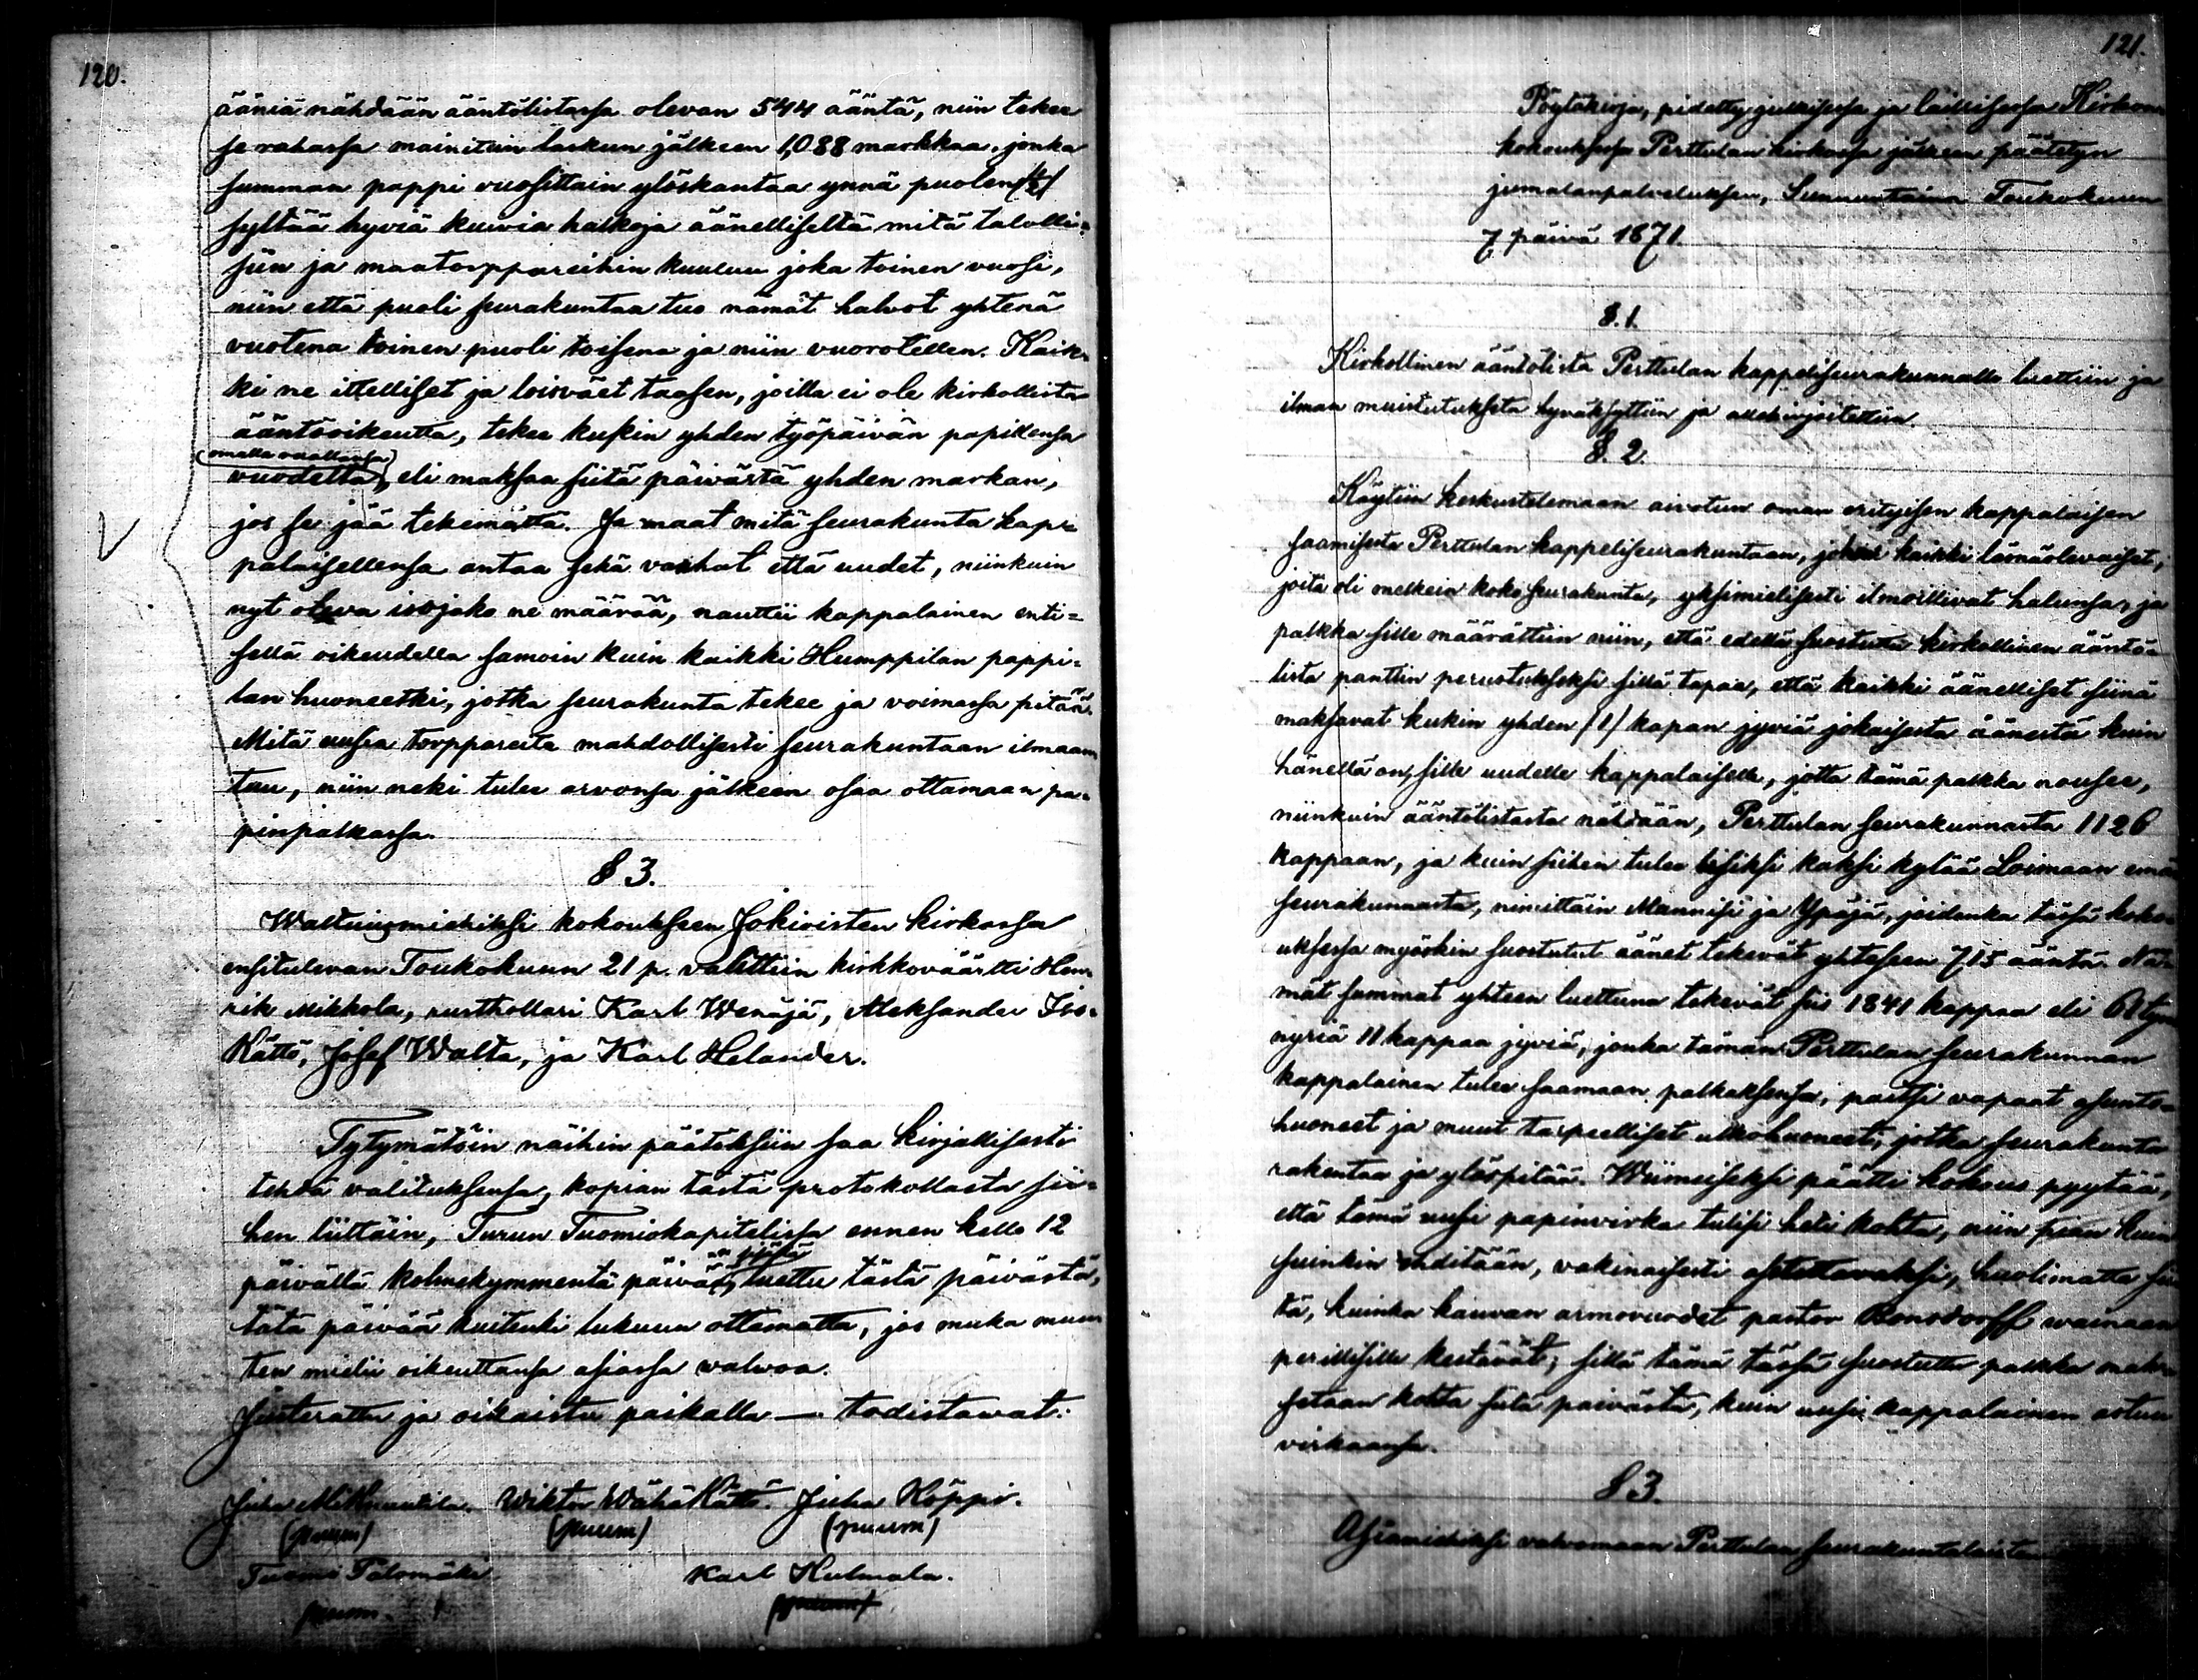 120.
ääniä nähdään ääntölistassa olevan 544 ääntä, niin tekee
se rahassa mainitun laskun jälkeen 1,088 markkaa, jonka
summan pappi vuosittain ylöskantaa ynnä puolen (½)
syltää hyviä kuivia halkoja äänelliseltä mitä talolli=
siin ja maatorppareihin kuuluu joka toinen vuosi,
niin että puoli seurakuntaa tuo nämät halvot yhtenä
vuotena toinen puoli toisena ja niin vuorotellen. Kaik=
ki ne itelliset ja loisväet taasen, joilla ei ole kirkollista
ääntöoikeutta, tekee kukin yhden työpäivän papillensa
(omalla ruallansa)
vuodelta, eli maksaa siitä päivästä yhden markan,
jos se jää tekemättä. Ja maat mitä seurakunta kap=
palaisellensa antaa sekä vanhat että uudet, niinkuin
nyt oleva isojako ne määrää, nauttii kappalainen enti=
sellä oikeudella samoin kuin kaikki Humppilan pappi=
lan huoneetki, jotka seurakunta tekee ja voimassa pitää.
Mitä uusia torppareita mahdollisesti seurakuntaan ilmaan
tuu, niin neki tulee arvonsa jälkeen osaa ottamaan pa=
pinpalkassa.
§ 3.
Waltuusmiehiksi kokoukseen Jokioisten kirkossa
ensitulevan Toukokuun 21 p. valittiin kirkkoväärtti Hen=
rik Mikkola, rusthollari Karl Wenäjä, Aleksander Iso=
Kättö, Josef Walta, ja Karl Helander.
Tytymätöin näihin päätöksiin saa kirjallisesti
tehdä valituksensa, kopian tästä protokollasta sii=
hen liittäin, Turun Tuomiokapitelissa ennen kello 12
päivällä kolmekymmentä päivää, luettu tästä päivästä,
tätä päivää kuitenki lukuun ottamatta, jos muka muu
ten mielii oikeuttansa asiassa walwoa.
Justerattu ja oikaistu paikalla — todistavat:
Juha Wiktor Wähä Kättö. Juha Köppi.
(puum) (puum) (puum)
Tuomo Palomäki Karl Hulmala.
puum. (puum)
121.
Pöytäkirja, pidetty julkisessa ja laillisessa Kirkon
kokouksessa Perttulan kirkossa jälkeen päätetyn
jumalanpalveluksen, Sunnuntaina Toukokuun
7 päivä 1871.
§. 1.
Kirkollinen ääntölista Perttulan kappeliseurakunnalle luettiin ja
ilman muistutuksetta hyväksyttiin ja allekirjoitettiin.
§. 2.
Käytiin keskustelemaan aivotun oman erityisen kappalaisen
saamisesta Perttulan kappeliseurakuntaan, johon kaikki läsnäolevaiset,
joita oli melkein koko seurakunta, yksimielisesti ilmoittivat halunsa, ja
palkka sille määrättiin niin, että edellä suostuttu kirkollinen ääntö=
lista panttiin perustukseksi sillä tapaa, että kaikki äänelliset siinä
maksavat kukin yhden (1) kapan jyviä jokaisesta äänestä kuin
hänellä on, sille uudelle kappalaiselle, jotta tämä palkka nousee,
niinkuin ääntölistasta nähdään, Perttulan seurakunnasta 1126
kappaan, ja kuin siihen tulee lisäksi kaksi kylää Loimaan emä
seurakunnasta, nimittäin Mannisi ja Ypäjä, joidenka tässä koko=
uksessa myöskin suostutut äänet tekevät yhtehen 715 ääntä. Nä=
mät summat yhteen luettuna tekevät siis 1841 kappaa eli 61 tyn
nyriä 11 kappaa jyviä, jonka tämän Perttulan seurakunnan
kappalainen tulee saamaan palkaksensa, paitsi vapaat asunto=
huoneet ja muut tarpeelliset ulkohuoneet, jotka seurakunta
rakentaa ja ylöspitää. Wiimeiseksi päätti kokous pyytää,
että tämä uusi papinvirka tulisi heti kohta, niin pian kuin
suinkin ehditään, vakinaisesti asetettavaksi, huolimatta sii
tä, kuinka kauvan armovuodet pastor Bonsdorff wainaan
perillisille kestävät; sillä tämä tässä suostuttu palkka mak=
setaan kohta siitä päivästä, kuin uusi kappalainen astuu
virkaansa.
§ 3.
Asiamiehiksi valvomaan Perttulan seurakuntalaisten